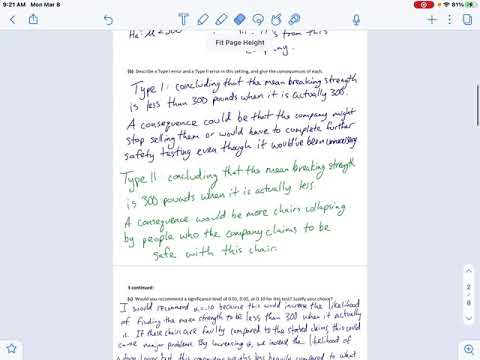 9:21 AM Mon Mar 8
81%
from this
Fit Page Height
(b) Describe a Type I error and a Type II error in this setting, and give the consequences of each.
Type I: concluding that the mean breaking strength
is less than 300 pounds when it is actually 300.
A consequence could be that the company might
stop selling them or would have to complete further
safety testing even though it would've been unnecessary
Type II concluding that the mean breaking strength
is 300 pounds when it is actually less.
A consequence would be more chairs collapsing
by people who the company claims to be
safe with this chair.
3 continued:
(c) Would you recommend a significance level of 0.01, 0.05, or 0.10 for this test? Justify your choice?
I would recommend α=.10 because this would increase the likelihood
of finding the mean strength to be less than 300 when it actually
is. If these chairs are faulty compared to the stated claims this could
cause major problems. By increasing α, we increase the likelihood of
2
6